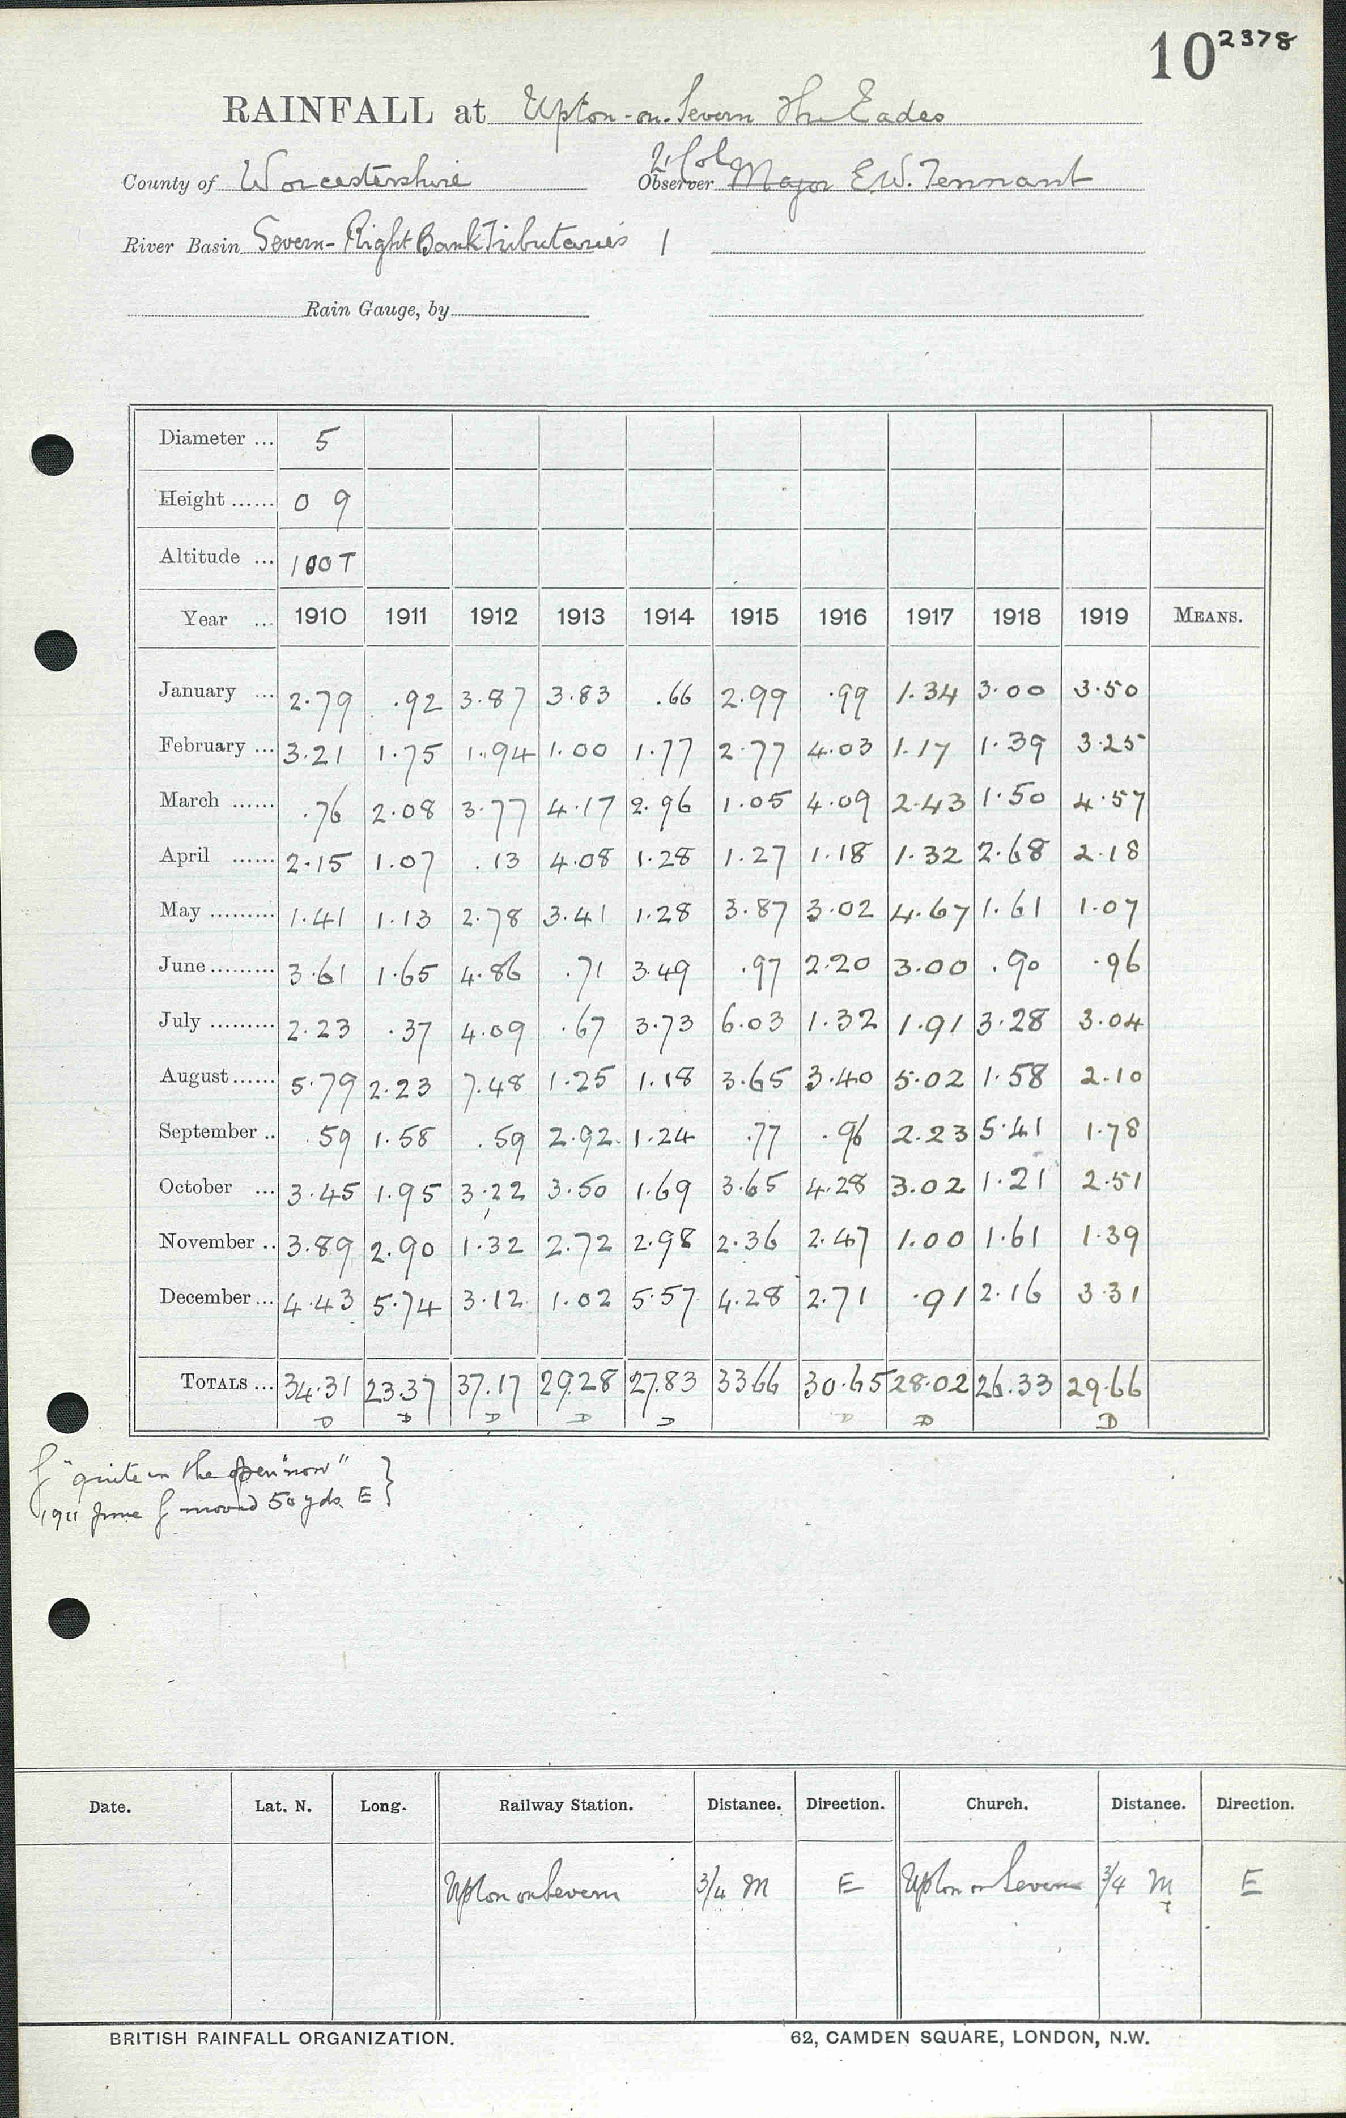 10 2378
RAINFALL at Upton-on-Severn The Eades
Lt. Col
County of Worcestershire Observer Major E.W. Tennant
River Basin Severn - Right Bank Tributaries 1
Rain Gauge, by
Diameter ... 5
Height ...... 0 9
Altitude ... 100 T
Year ... 1910 1911 1912 1913 1914 1915 1916 1917 1918 1919 MEANS.
January ... 2.79 .92 3.87 3.83 .66 2.99 .99 1.34 3.00 3.50
February ... 3.21 1.75 1.94 1.00 1.77 2.77 4.03 1.17 1.39 3.25
March ...... .76 2.08 3.77 4.17 2.96 1.05 4.09 2.43 1.50 4.57
April ...... 2.15 1.07 .13 4.08 1.28 1.27 1.18 1.32 2.68 2.18
May ......... 1.41 1.13 2.78 3.41 1.28 3.87 3.02 4.67 1.61 1.07
June ......... 3.61 1.65 4.86 .71 3.49 .97 2.20 3.00 .90 .96
July ......... 2.23 .37 4.09 .67 3.73 6.03 1.32 1.91 3.28 3.04
August ...... 5.79 2.23 7.48 1.25 1.18 3.65 3.40 5.02 1.58 2.10
September .. .59 1.58 .59 2.92 1.24 .77 .96 2.23 5.41 1.78
October ... 3.45 1.95 3.22 3.50 1.69 3.65 4.28 3.02 1.21 2.51
November .. 3.89 2.90 1.32 2.72 2.98 2.36 2.47 1.00 1.61 1.39
December ... 4.43 5.74 3.12 1.02 5.57 4.28 2.71 .91 2.16 3.31
TOTALS ... 34.31 23.37 37.17 29.28 27.83 33.66 30.65 28.02 26.33 29.66
D D D D D D D D
g "quite in the open now"
1911 June g moved 50 yds. E
Date. Lat. N. Long. Railway Station. Distance. Direction. Church. Distance. Direction.
Upton on Severn 3/4 M E Upton on Severn 3/4 M E
T
BRITISH RAINFALL ORGANIZATION. 62, CAMDEN SQUARE, LONDON, N.W.